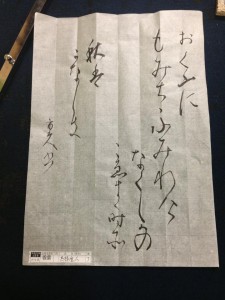 おく山に
もみちふみわけ
なくしかの
こゑきく時そ
秋は
かなしき